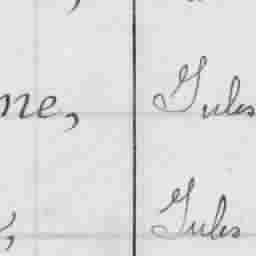 ne, Jules
Jules